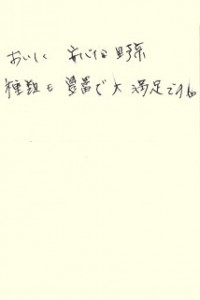 おいしく 安心な野菜
種類も豊富で大満足です